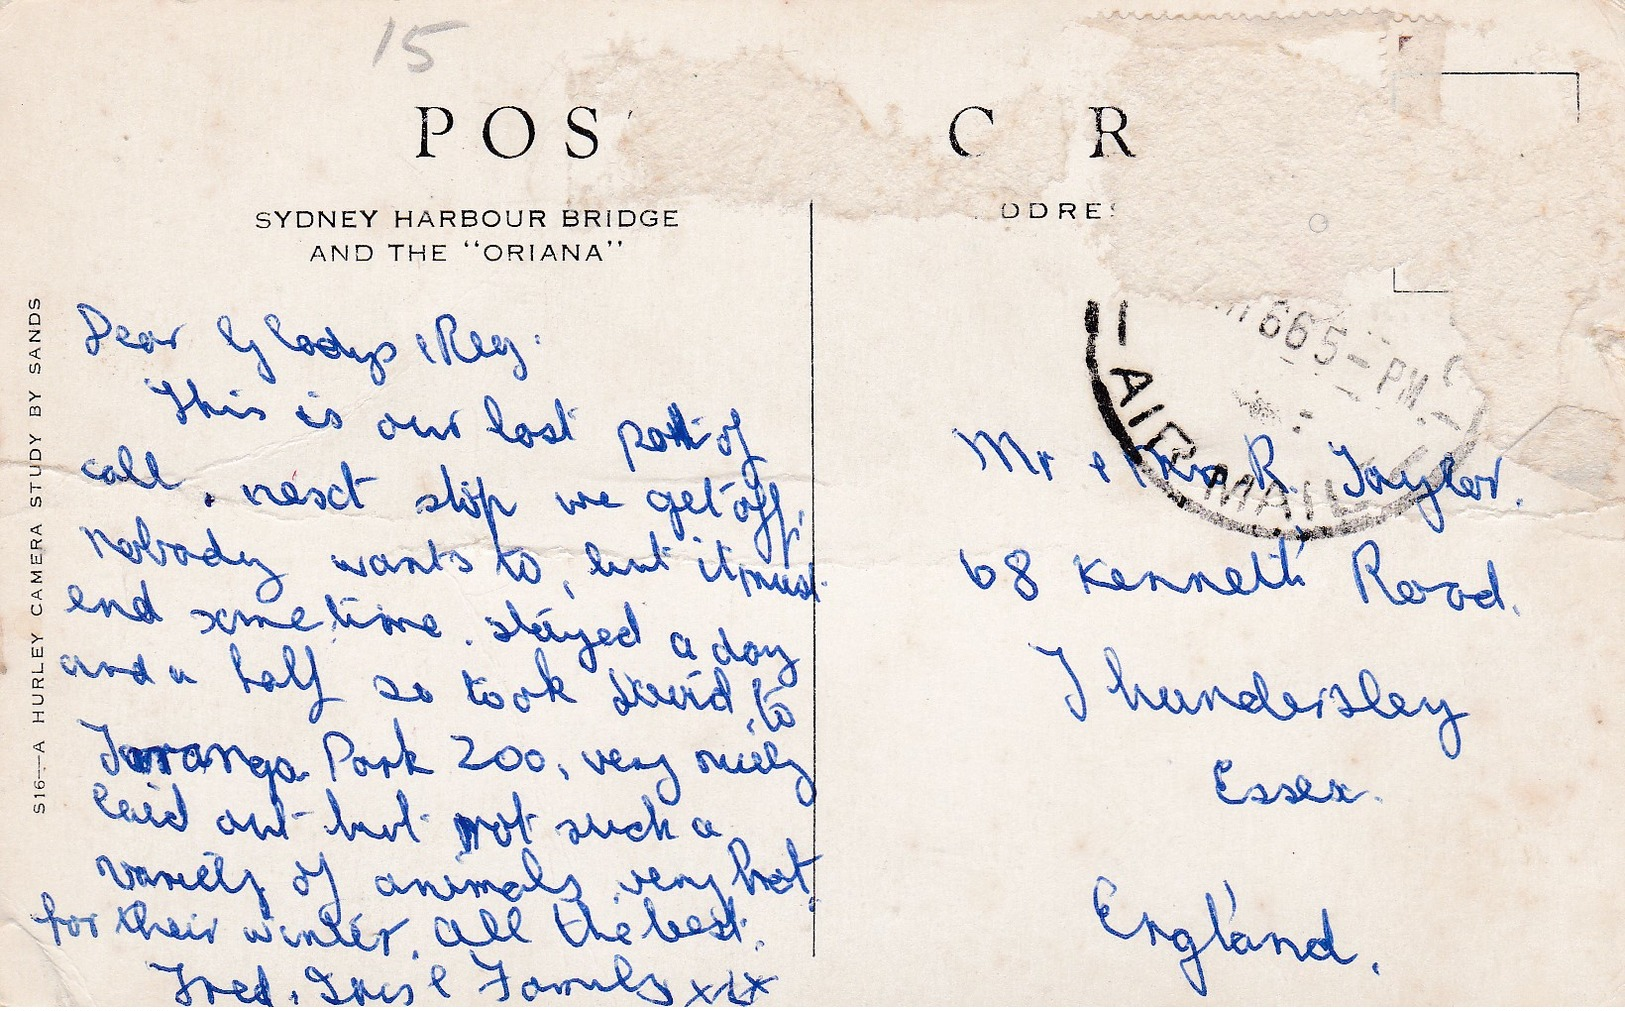 15
POS C R
SYDNEY HARBOUR BRIDGE
AND THE "ORIANA"
DDRES
S16—A HURLEY CAMERA STUDY BY SANDS
665-PM
AIR MAIL
Dear Gladys & Reg.
This is our last port of
call, next stop we get off,
nobody wants to, but it must
end sometime. stayed a day
and a half so took David to
Taranga Park Zoo, very nicely
laid out but not such a
variety of animals, very hot
for their winter. All the best.
Fred, Iris & Family xxx
Mr & Mrs R. Taylor.
68 Kenneth Road.
Thundersley
Essex.
England.